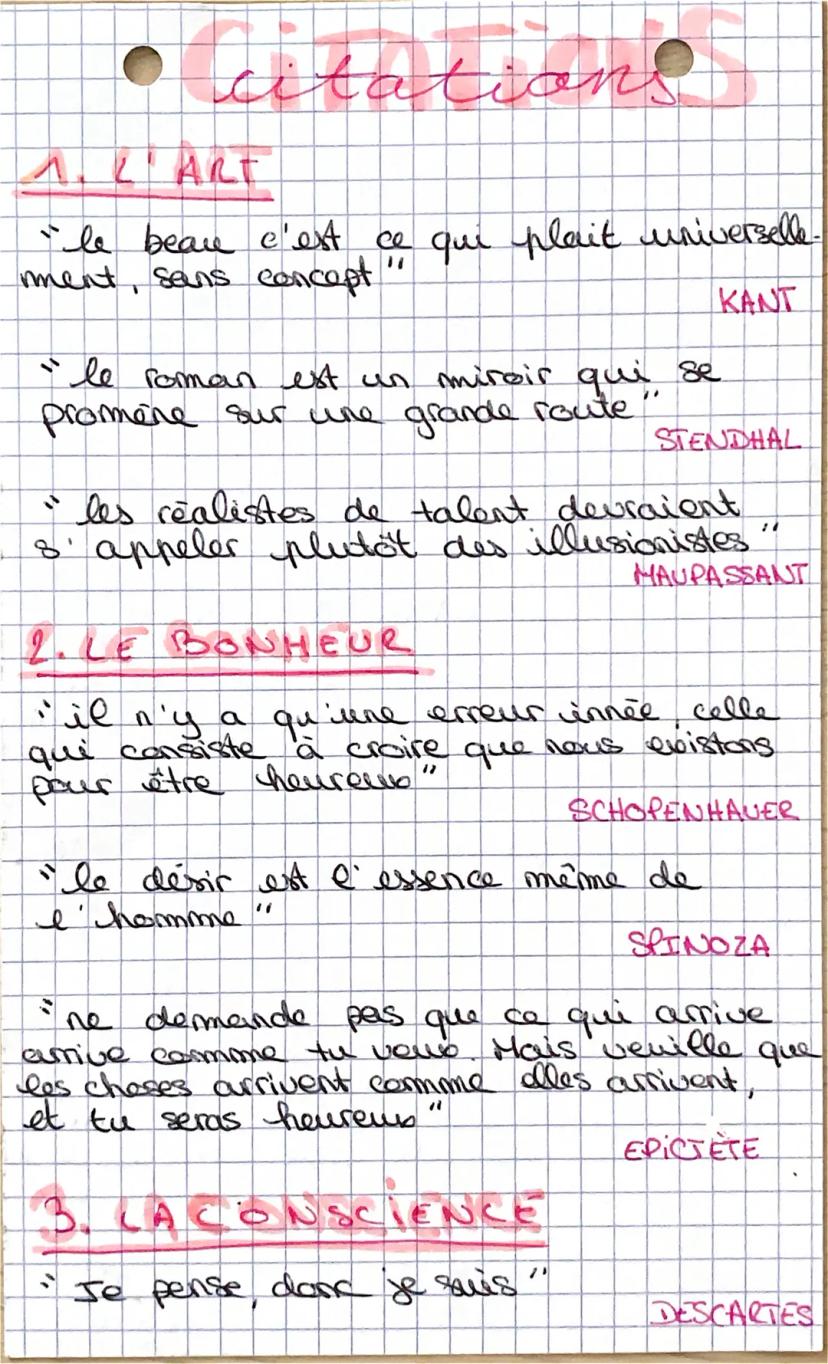 CITATIONS
citations
1. L'ART
"le beau c'est ce qui plait universelle-
ment, sans concept"
KANT
"le roman est un miroir qui se
promène sur une grande route"
STENDHAL
"les réalistes de talent devraient
s'appeler plutôt des illusionistes"
MAUPASSANT
2. LE BONHEUR
"il n'y a qu'une erreur innée, celle
qui consiste à croire que nous existons
pour être heureux"
SCHOPENHAUER
"le désir est l'essence même de
l'homme"
SPINOZA
"ne demande pas que ce qui arrive
arrive comme tu veux. Mais veuille que
les choses arrivent comme elles arrivent,
et tu seras heureux"
EPICTÈTE
3. LA CONSCIENCE
"Je pense, donc je suis"
DESCARTES